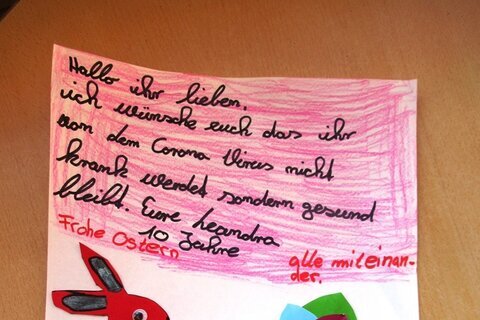 Hallo ihr lieben,
ich wünsche euch das ihr
von dem Corona Virus nicht
krank werdet sondern gesund
bleibt. Eure Leandra
10 Jahre
Frohe Ostern
alle miteinan-
der.